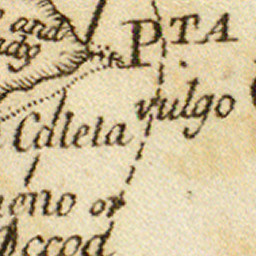 and
PTA
vulgo
Caleta
eno or
Accod